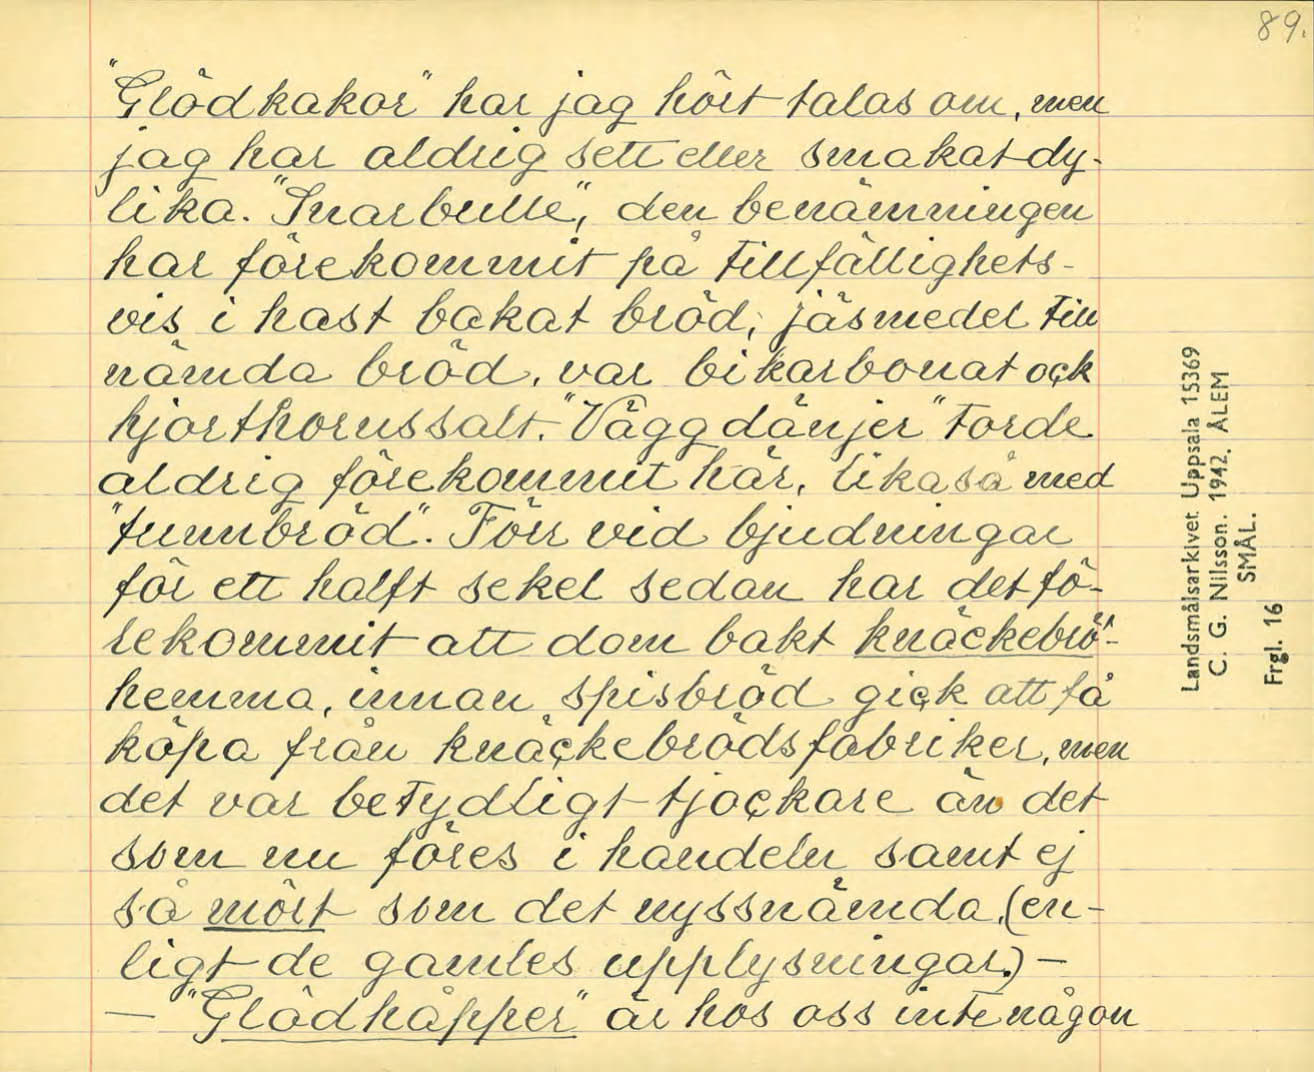 89.
"Glödkakor" har jag hört talas om, men
jag har aldrig sett eller smakat dy-
lika. "Snarbulle", den benämningen
har förekommit på tillfällighets-
vis i hast bakat bröd; jäsmedel till
nämda bröd, var bikarbonat ock
hjorthornssalt. "Väggdänjer" torde
aldrig förekommit här, likaså med
"tunnbröd". Förr vid bjudningar
för ett halft sekel sedan har det fö-
rekommit att dom bakt knäckebrö"-
hemma, innan spisbröd gick att få
köpa från knäckebrödsfabriker, men
det var betydligt tjockare än det
som nu föres i handeln samt ej
så mört som det nyssnämda, (en-
ligt de gamles upplysningar.) -
- "Glödhåpper" är hos oss inte någon
Landsmålsarkivet Uppsala 15369
C. G. Nilsson. 1942. ÅLEM
SMÅL.
Frgl. 16